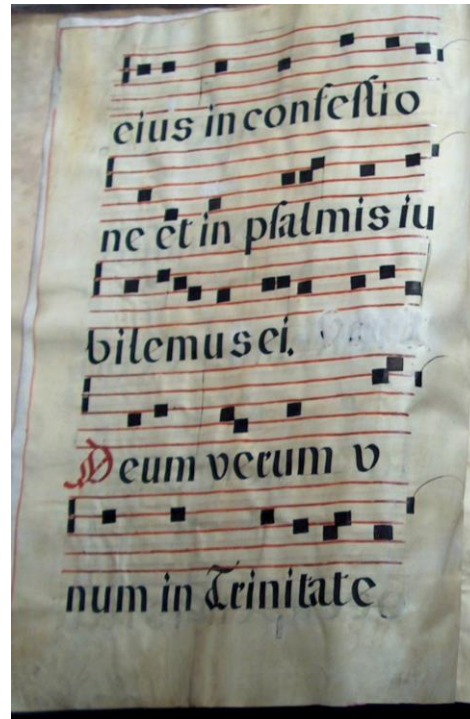 eius in confeſſio
ne et in pſalmis iu
bilemus ei.
Deum verum v
num in Trinitate